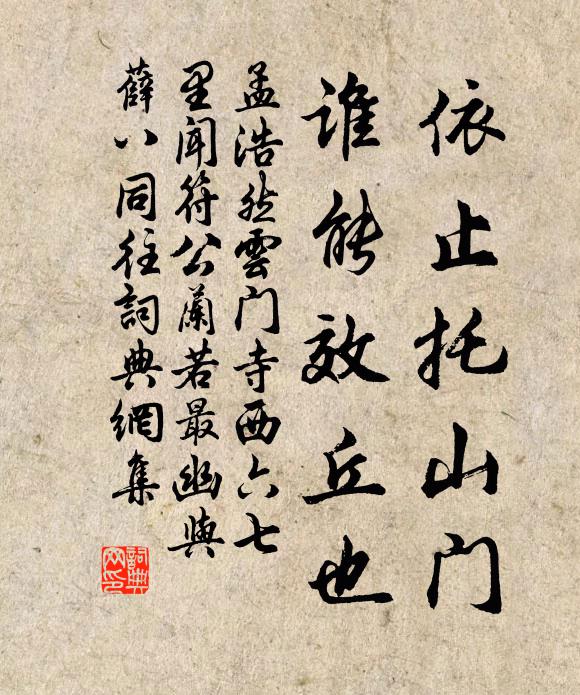 依止托山门
谁能效丘也
孟浩然雲门寺西六七
里闻符公蘭若最幽與
薛八同往詞典網集
詞典网印